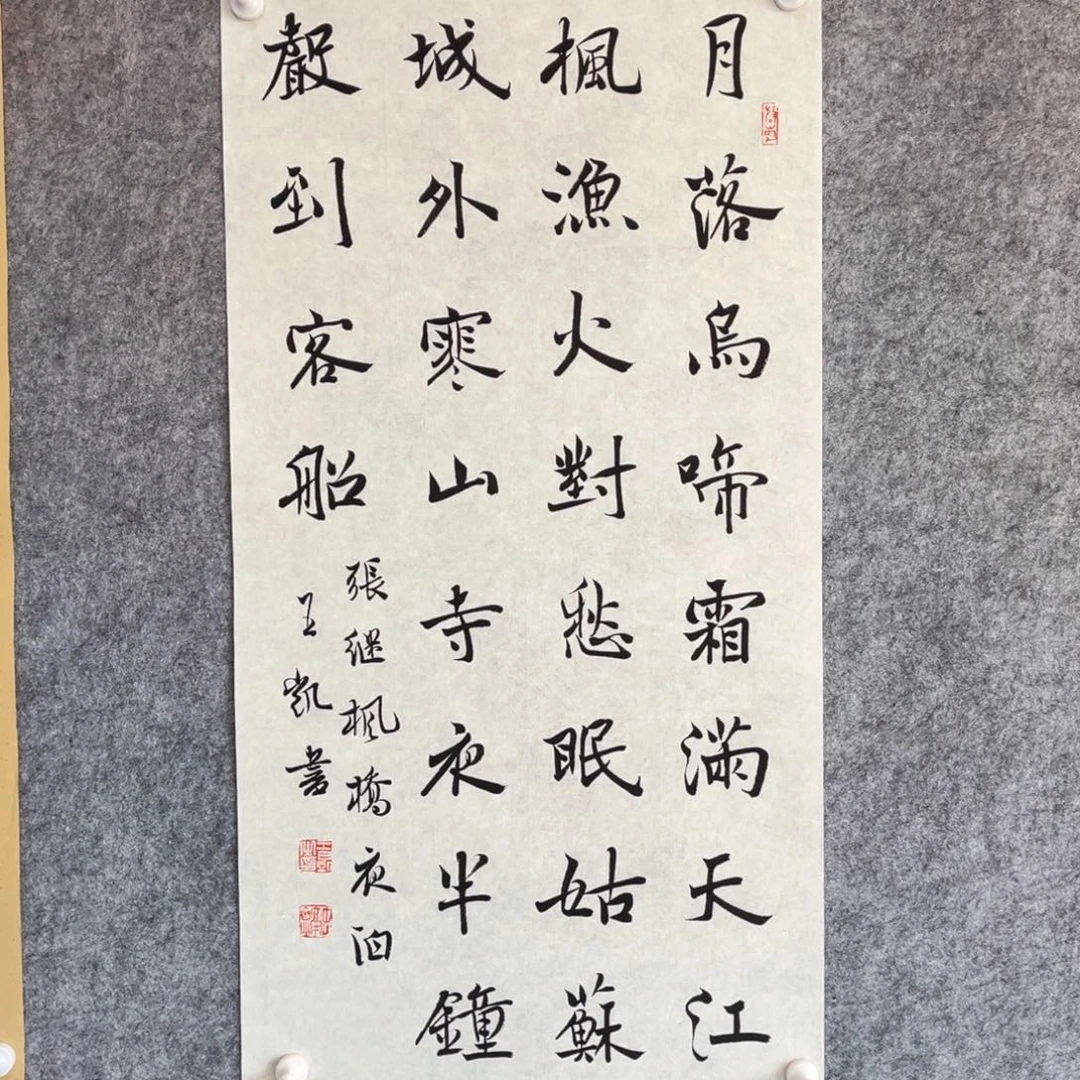 月落烏啼霜滿天江
楓漁火對愁眠姑蘇
城外寒山寺夜半鐘
聲到客船
張继楓橋夜泊
王凱書